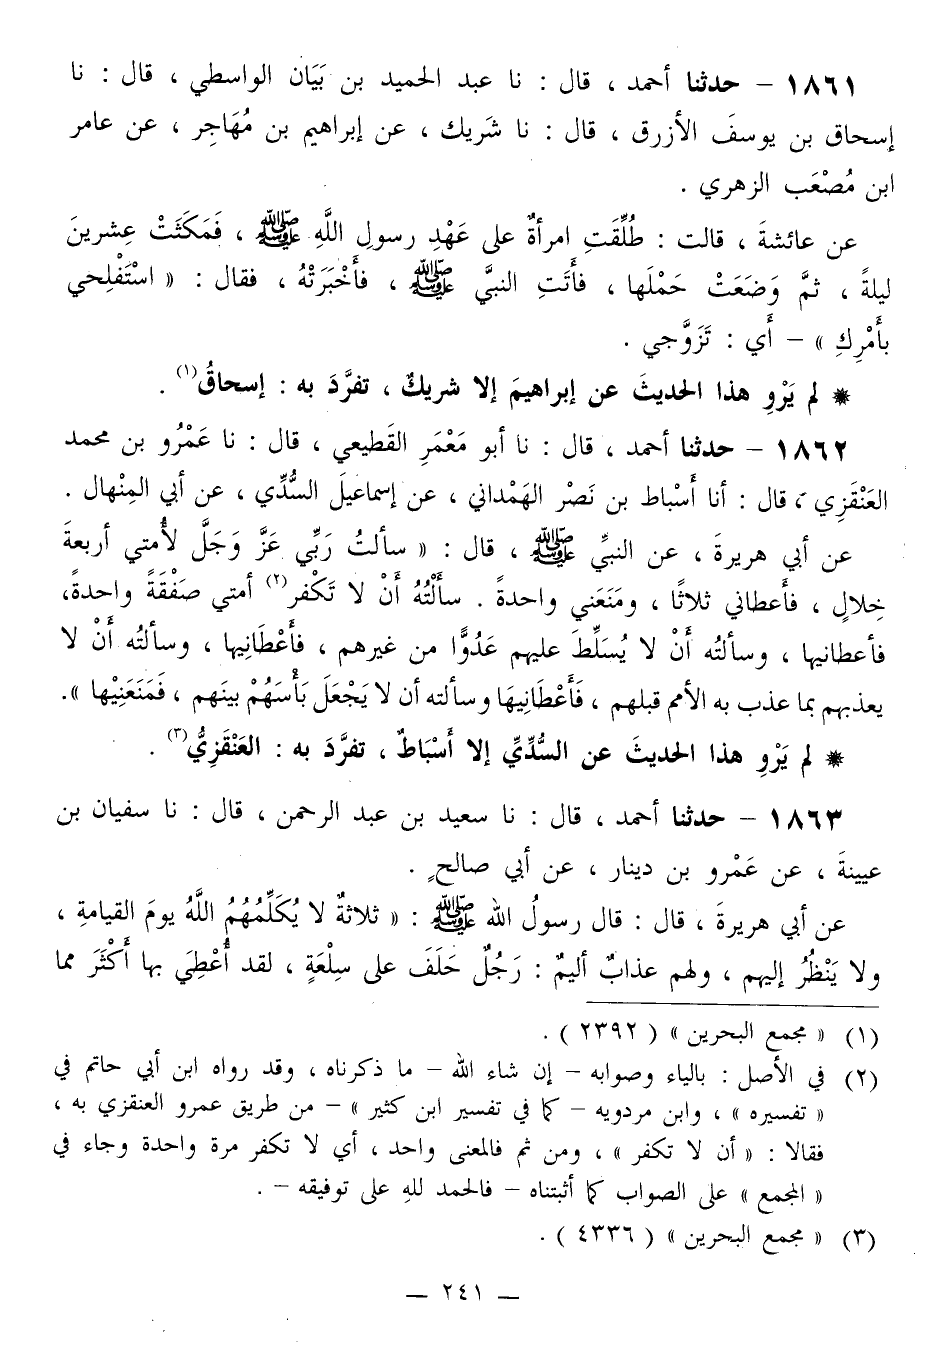 ١٨٦١ – حدثنا أحمد ، قال : نا عبد الحميد بن بَيَان الواسطي ، قال : نا
إسحاق بن يوسفَ الأزرق ، قال : نا شَريك ، عن إبراهيم بن مُهَاجِر ، عن عامر
ابن مُصْعَب الزهري .
عن عائشةَ ، قالت : طُلِّقَتِ امرأةٌ على عَهْدِ رسولِ اللَّهِ ﷺ ، فَمَكَثَتْ عِشرينَ
ليلةً ، ثمَّ وَضَعَتْ حَمْلَها ، فأَتَتِ النبيَّ ﷺ ، فأَخْبَرَتْهُ ، فقال : « اسْتَفْلِحي
بأَمْرِكِ » – أَي : تَزَوَّجي .
⁕ لم يَرْوِ هذا الحديثَ عن إبراهيمَ إلا شريكٌ ، تفرَّدَ به : إسحاقُ(١) .
١٨٦٢ – حدثنا أحمد ، قال : نا أبو مَعْمَرِ القَطيعي ، قال : نا عَمْرُو بن محمد
العَنْقَزِي ، قال : أنا أَسْبَاط بن نَصْر الهَمْداني ، عن إسماعيلَ السُّدِّي ، عن أبي المِنْهال .
عن أبي هريرةَ ، عن النبيِّ ﷺ ، قال : « سألتُ رَبِّي عَزَّ وَجَلَّ لأُمتي أربعةَ
خِلالٍ ، فأَعطاني ثلاثًا ، ومَنَعَني واحدةً . سأَلْتُهُ أَنْ لا تَكْفر(٢) أمتي صَفْقَةً واحدةً،
فأعطانيها ، وسألتُه أَنْ لا يُسَلِّطَ عليهم عَدُوًّا من غيرهم ، فأَعْطَانِيها ، وسألتُه أَنْ لا
يعذبهم بما عذب به الأمم قبلهم ، فَأَعْطَانِيهَا وسألته أن لا يَجْعَلَ بَأْسَهُمْ بينَهم ، فَمَنَعَنِيْها ».
⁕ لم يَرْوِ هذا الحديثَ عن السُّدِّي إلا أَسْبَاطٌ ، تفرَّدَ به : العَنْقَزِيُّ(٣) .
١٨٦٣ – حدثنا أحمد ، قال : نا سعيد بن عبد الرحمن ، قال : نا سفيان بن
عيينةَ ، عن عَمْرو بن دينار ، عن أبي صالحٍ .
عن أبي هريرةَ ، قال : قال رسولُ الله ﷺ : « ثلاثةٌ لا يُكَلِّمُهُمُ اللَّهُ يومَ القيامةِ ،
ولا يَنْظُرُ إليهم ، ولهم عذابٌ أليمٌ : رَجُلٌ حَلَفَ على سِلْعَةٍ ، لقد أُعْطِيَ بها أَكْثَرَ مما
(١) « مجمع البحرين » ( ٢٣٩٢ ) .
(٢) في الأصل : بالياء وصوابه – إن شاء الله – ما ذكرناه ، وقد رواه ابن أبي حاتم في
« تفسيره » ، وابن مردويه – كما في تفسير ابن كثير » – من طريق عمرو العنقزي به ،
فقالا : « أن لا تكفر » ، ومن ثم فالمعنى واحد ، أي لا تكفر مرة واحدة وجاء في
« المجمع » على الصواب كما أثبتناه – فالحمد للهِ على توفيقه – .
(٣) « مجمع البحرين » ( ٤٣٣٦ ) .
— ٢٤١ —